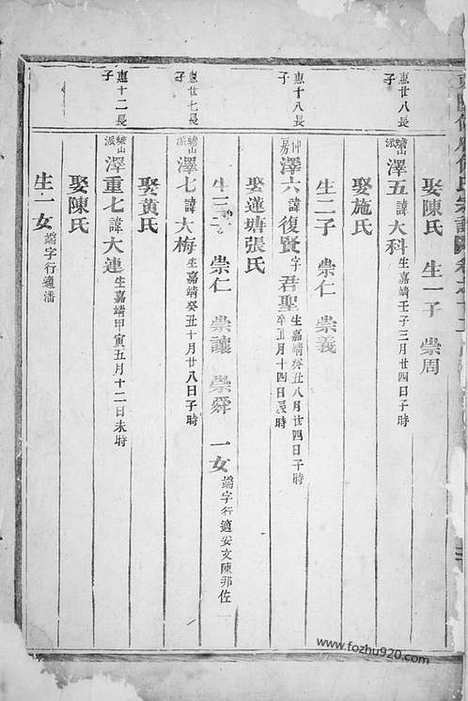 氏宗譜
娶陳氏 生一子 崇周
惠廿八長子
山派 澤五 諱大科 生嘉靖壬子三月廿四日子時
娶施氏
生二子 崇仁 崇義
惠十八長子
仲房 澤六 諱復賢 字君聖 生嘉靖癸丑八月廿四日子時
卒丑月十四日辰時
娶蓮塘張氏
生三子 崇仁 崇讓 崇舜 一女 端字行適安文陳邦佐
惠廿七長子
山派 澤七 諱大梅 生嘉靖癸丑十月廿八日子時
娶黃氏
惠十二長子
山派 澤重七 諱大連 生嘉靖甲寅五月十二日未時
娶陳氏
生一女 端字行適潘
www.fozhu920.com